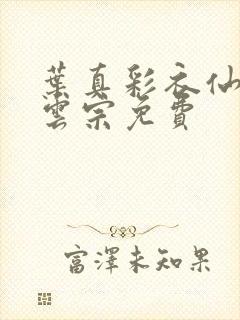 葉真彩衣仙
雲宗免費
富澤未知果